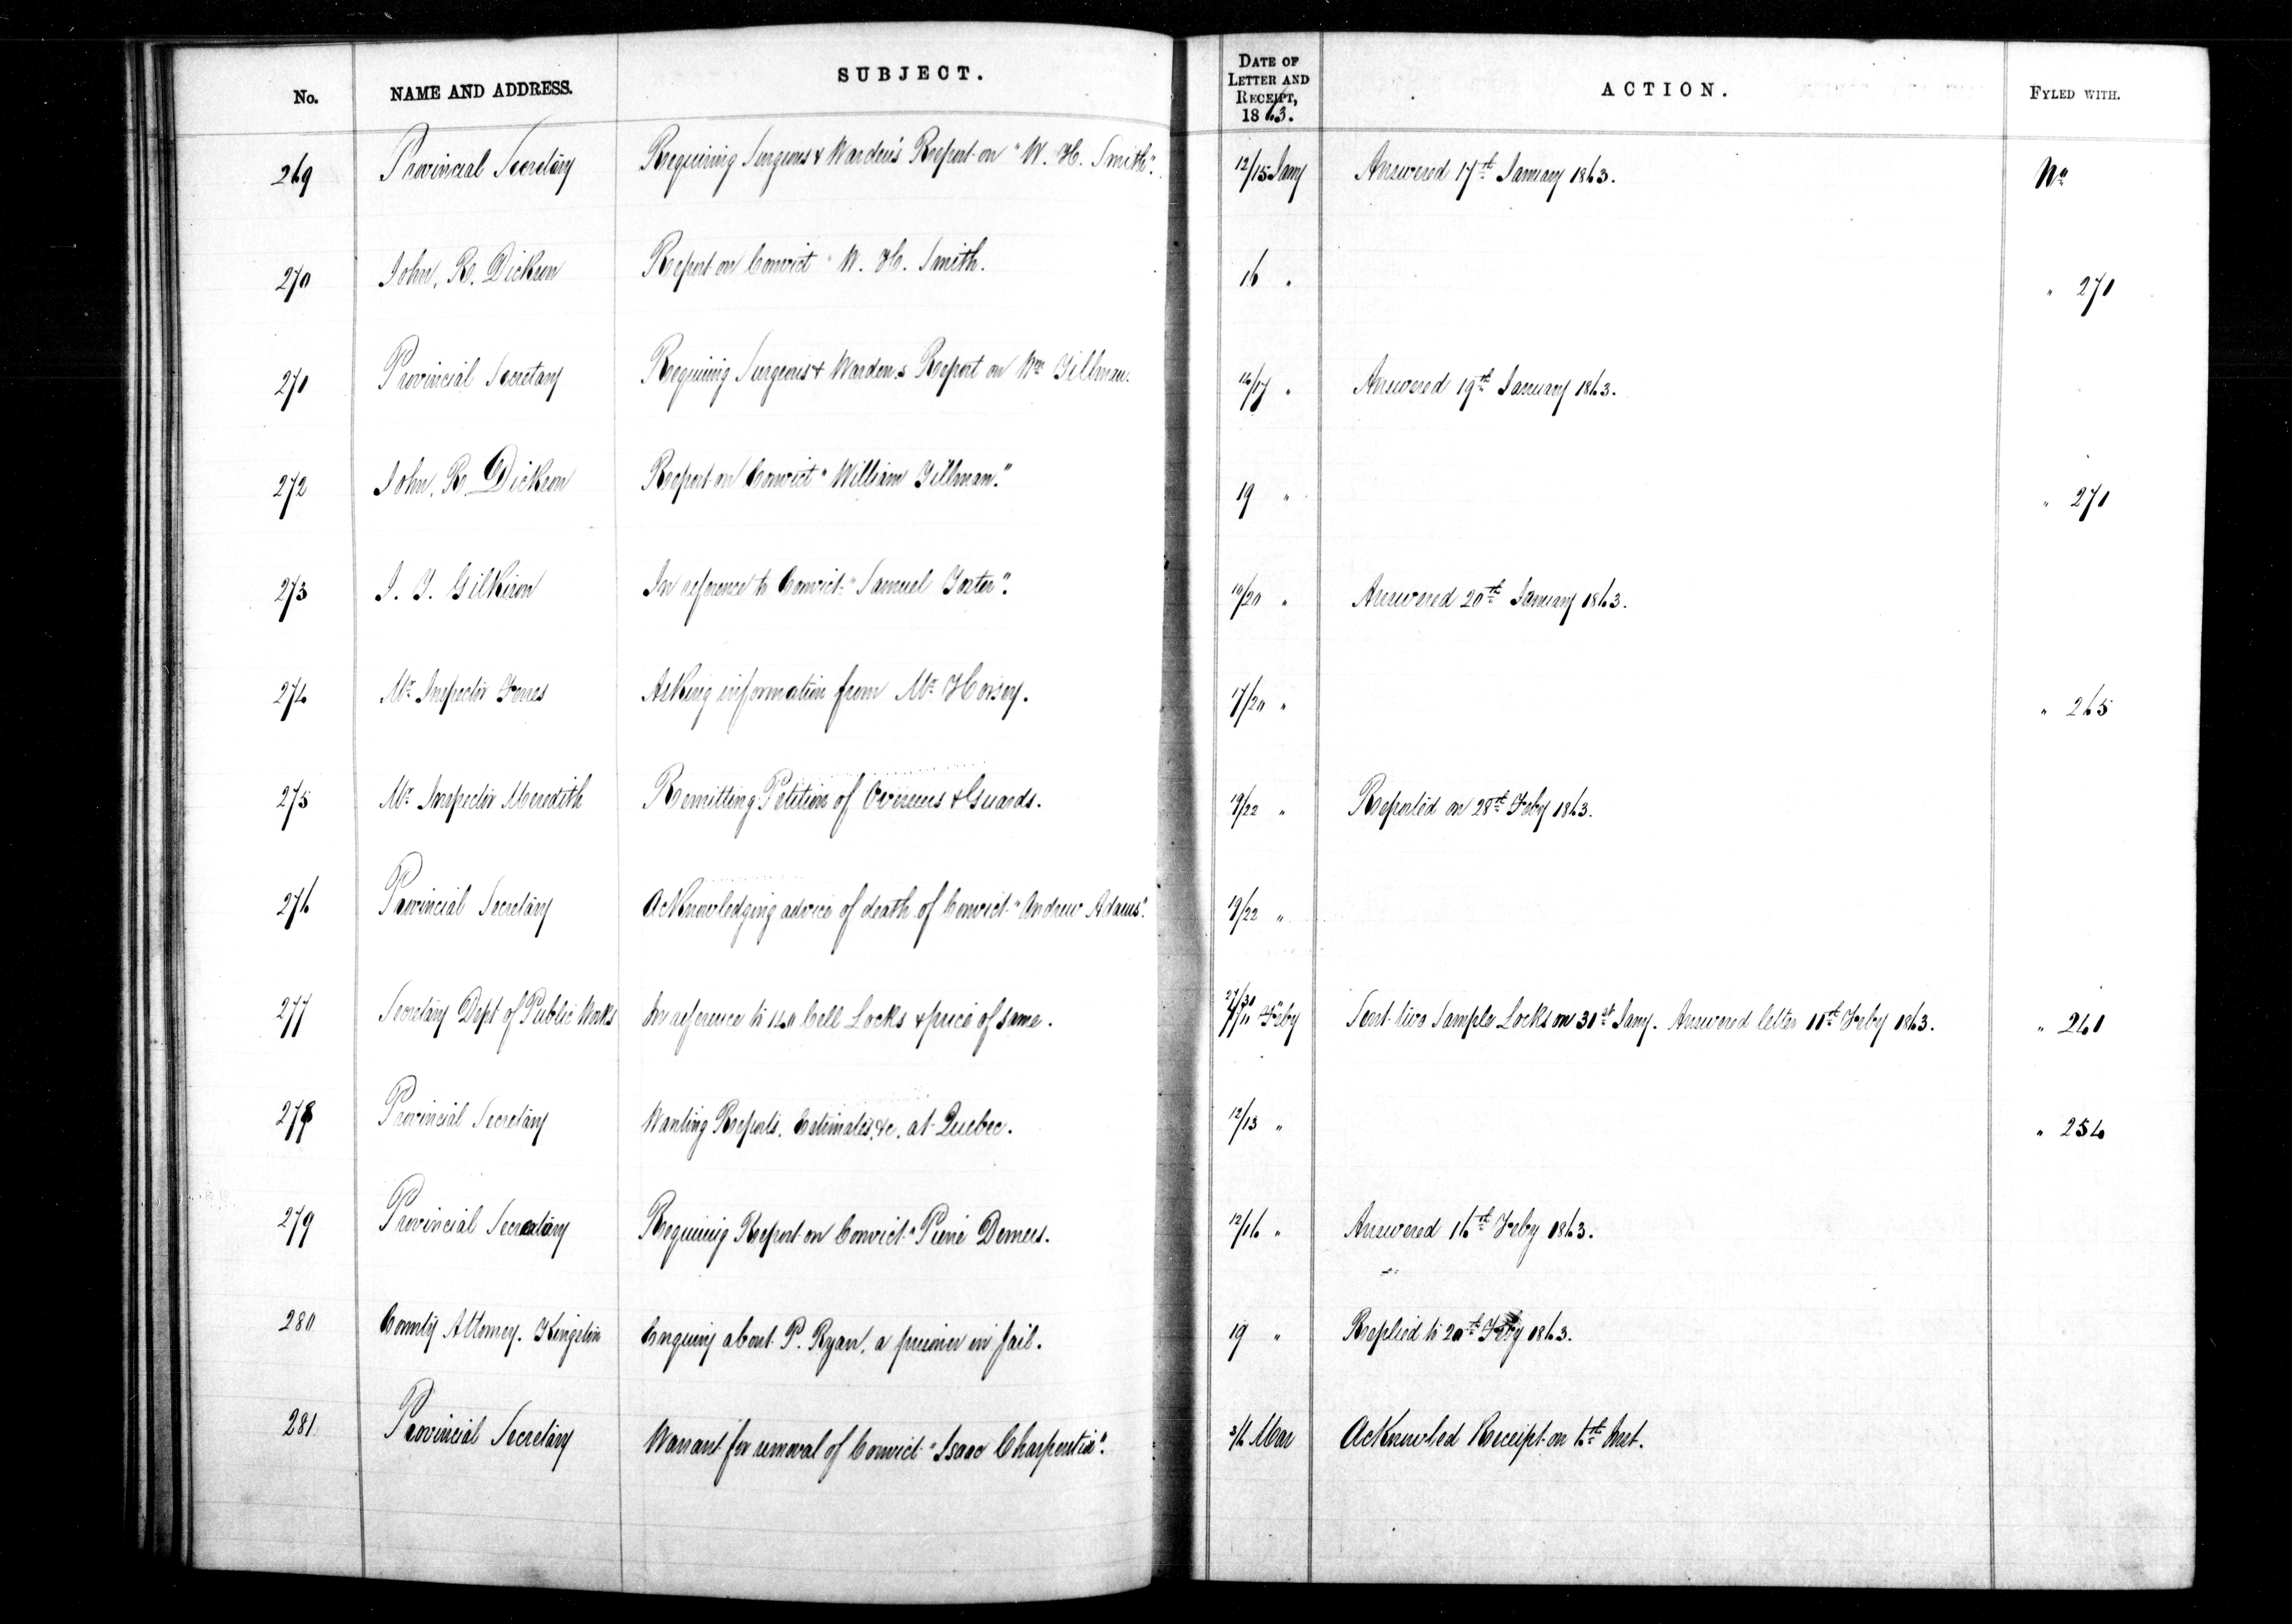 No. NAME AND ADDRESS. SUBJECT. DATE OF LETTER AND RECEIPT, 1863. ACTION. FYLED WITH.
269 Provincial Secretary Requiring Surgeons & Warden's Report on "W. H. Smith". 12/15 Jany Answered 17th January 1863. No
270 John. R. Dickson Report on Convict "W. H. Smith. 16 " " 270
270 Provincial Secretary Requiring Surgeons & Wardens Report on Wm Tillman. 16/17 " Answered 19th January 1863.
272 John. R. Dickson Report on Convict "William Tillman." 19 " " 270
273 J. T. Gilkison In reference to Convict "Samuel Foster". 16/20 " Answered 20th January 1863.
274 Mr Inspector Ferres Asking information from Mr Horsey. 17/20 " " 265
275 Mr Inspector Meredith Remitting Petition of Overseers & Guards. 19/22 " Reported on 28th Feby 1863.
276 Provincial Secretary Acknowledging advice of death of Convict "Andrew Adams". 19/22 "
277 Secretary Dept of Public Works In reference to 140 Cell Locks & price of same. 27/30 " 7/11 Feby Sent two Sample Locks on 31st Jany. Answered letter 11th Feby 1863. " 261
278 Provincial Secretary Wanting Reports. Estimates, &c. at Quebec. 12/13 " " 254
279 Provincial Secretary Requiring Report on Convict "Pierre Demers. 12/16 " Answered 16th Feby 1863.
280 County Attorney. Kingston Enquiry about P. Ryan, a prisoner in Jail. 19 " Replied to 20th Feby 1863.
281 Provincial Secretary Warrant for removal of Convict "Isaac Charpentier". 3/6 Mar Acknowled Receipt on 6th Inst.